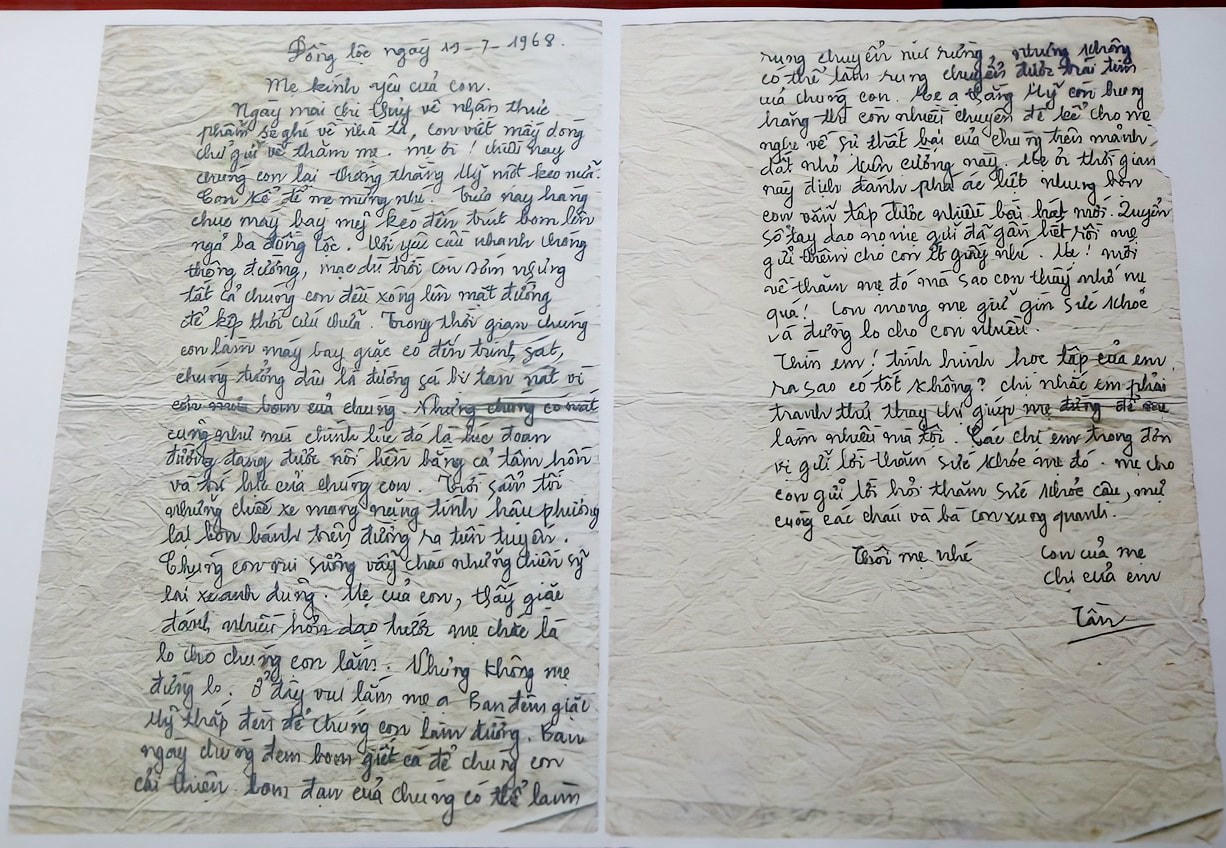 Đồng lộc ngày 19-7-1968.
Mẹ kính yêu của con.
Ngày mai chị thủy về nhận thức
phẩm sẽ ghé về nhà ta, con viết mấy dòng
chữ gửi về thăm mẹ. mẹ ơi! chiều nay
chúng con lại thắng thằng Mỹ một keo nữa.
Con kể để mẹ mừng nhé. Trưa nay hàng
chục máy bay mỹ kéo đến trút bom lên
ngã ba đồng lộc. Với yêu cầu nhanh chóng
thông đường, mạc dù trời còn sớm nhưng
tất cả chúng con đều xông lên mặt đường
để kịp thời cứu chữa. Trong thời gian chúng
con làm máy bay giặc có đến trinh sát,
chúng tưởng đâu là đường sá bị tan nát vì
bom của chúng. Nhưng chúng có mắt
cũng như mù chính lúc đó là lúc đoạn
đường đang được nối liền bằng cả tâm hồn
và trí lực của chúng con. Trời sẩm tối
những chiếc xe mang nặng tình hậu phương
lại bon bánh trên đường ra tiền tuyến.
Chúng con vui sướng vẫy chào những chiến sỹ
lái xe anh dũng. Mẹ của con, thấy giặc
đánh nhiều hơn dạo trước mẹ chắc là
lo cho chúng con lắm. Nhưng không mẹ
đừng lo. Ở đây vui lắm mẹ ạ Ban đêm giặc
Mỹ thắp đèn để chúng con làm đường. Ban
ngày chúng đem bom giết cá để chúng con
cải thiện. bom đạn của chúng có thể làm
rung chuyển núi rừng, nhưng không
có thể làm rung chuyển được trái tim
của chúng con. Mẹ ạ thằng Mỹ còn hung
hăng thì còn nhiều chuyện để kể cho mẹ
nghe về sự thất bại của chúng trên mảnh
đất nhỏ kiên cường này. Mẹ ơi thời gian
này địch đánh phá ác liệt nhưng bọn
con vẫn tập được nhiều bài hát mới. Quyển
sổ tay dạo nọ mẹ gửi đã gần hết rồi mẹ
gửi thêm cho con ít giấy nhé. Mẹ! mới
về thăm mẹ đó mà sao con thấy nhớ mẹ
quá! Con mong mẹ giữ gìn sức khoẻ
và đừng lo cho con nhiều.
Thìn em! tình hình học tập của em
ra sao có tốt không? chị nhắc em phải
tranh thủ thay chị giúp mẹ đừng để mẹ
làm nhiều mà tội. Các chị em trong đơn
vị gửi lời thăm sức khoẻ mẹ đó. mẹ cho
con gửi lời hỏi thăm sức khoẻ cậu, mự
cùng các cháu và bà con xung quanh.
Thôi mẹ nhé
Con của mẹ
Chị của em
Tần